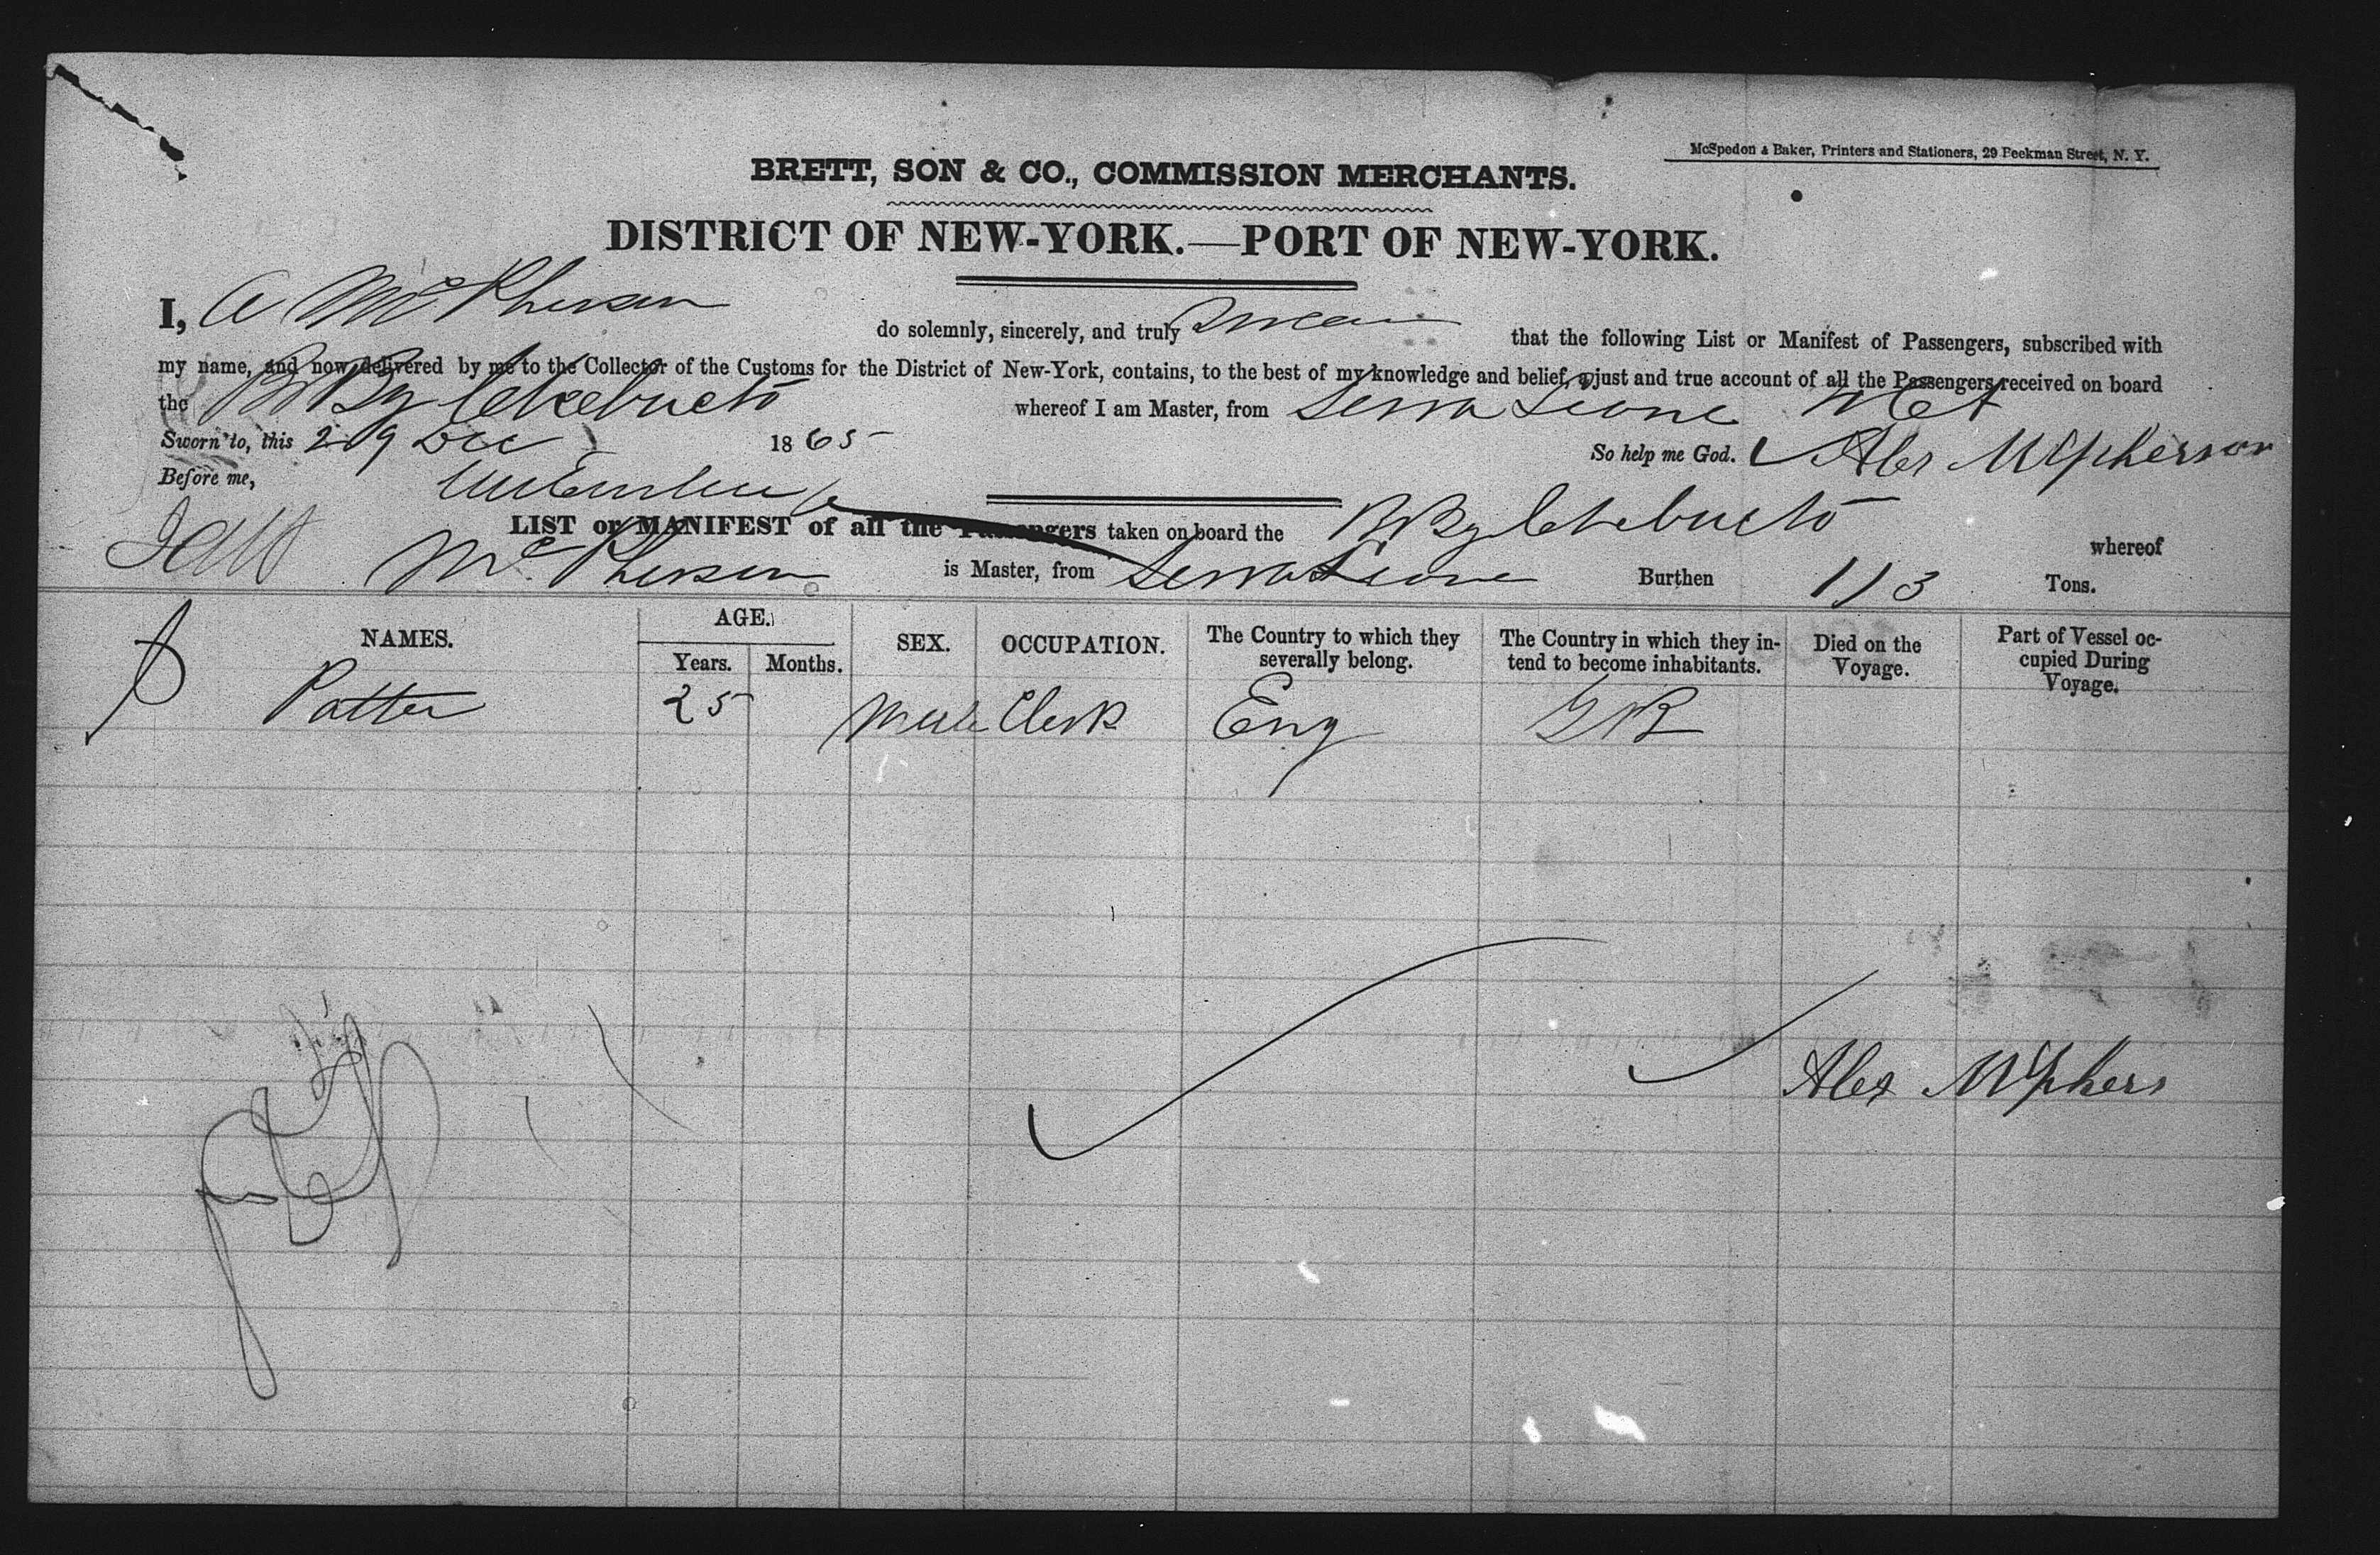 McSpedon & Baker, Printers and Stationers, 29 Beekman Street, N. Y.
BRETT, SON & CO., COMMISSION MERCHANTS.
DISTRICT OF NEW-YORK.—PORT OF NEW-YORK.
I, A McPherson do solemnly, sincerely, and truly Swear that the following List or Manifest of Passengers, subscribed with
my name, and now delivered by me to the Collector of the Customs for the District of New-York, contains, to the best of my knowledge and belief, a just and true account of all the Passengers received on board
the Br Bg Chebucto whereof I am Master, from Serra Leone
Sworn to, this 29 Dec 1865 So help me God. Alex McPherson
Before me,
LIST or MANIFEST of all the Passengers taken on board the B Bg Chebucto whereof
McPherson is Master, from Serra Leone Burthen 113 Tons.
NAMES. AGE. Years. Months. SEX. OCCUPATION. The Country to which they severally belong. The Country in which they intend to become inhabitants. Died on the Voyage. Part of Vessel occupied During Voyage.
Potter 25 Male Clerk Eng GB
Alex McPhers